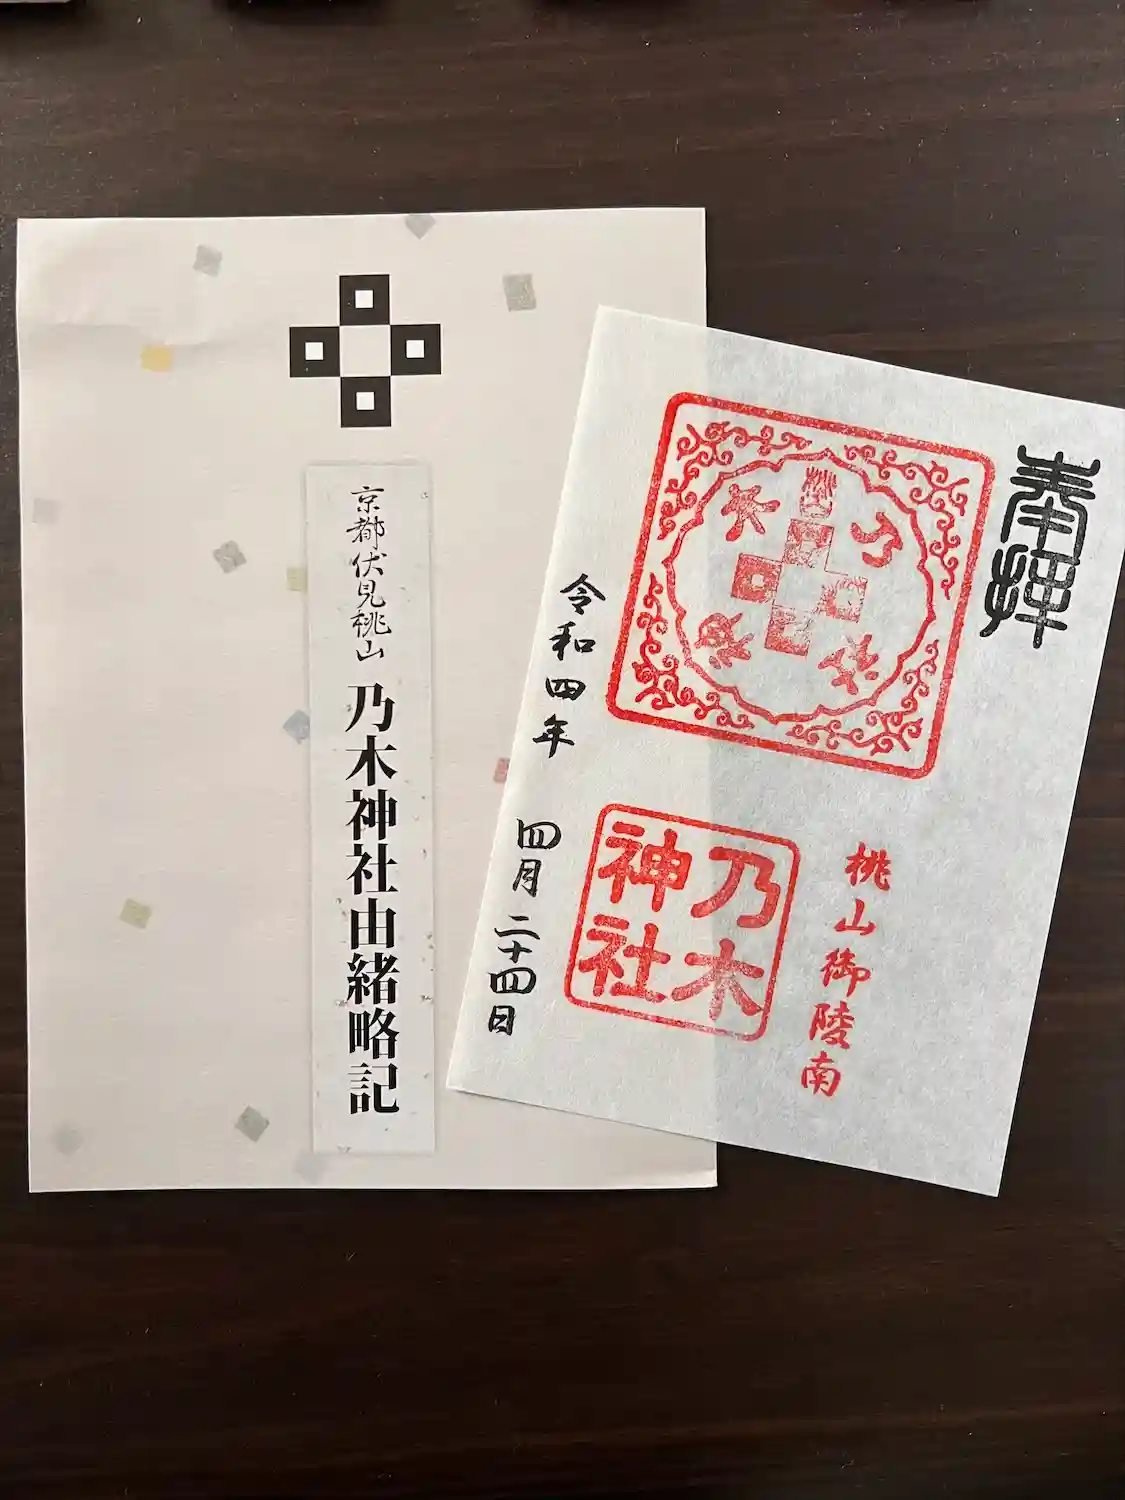 京都伏見桃山
乃木神社由緒略記
奉拝
桃山御陵南
乃木
神社
令和四年
四月二十四日